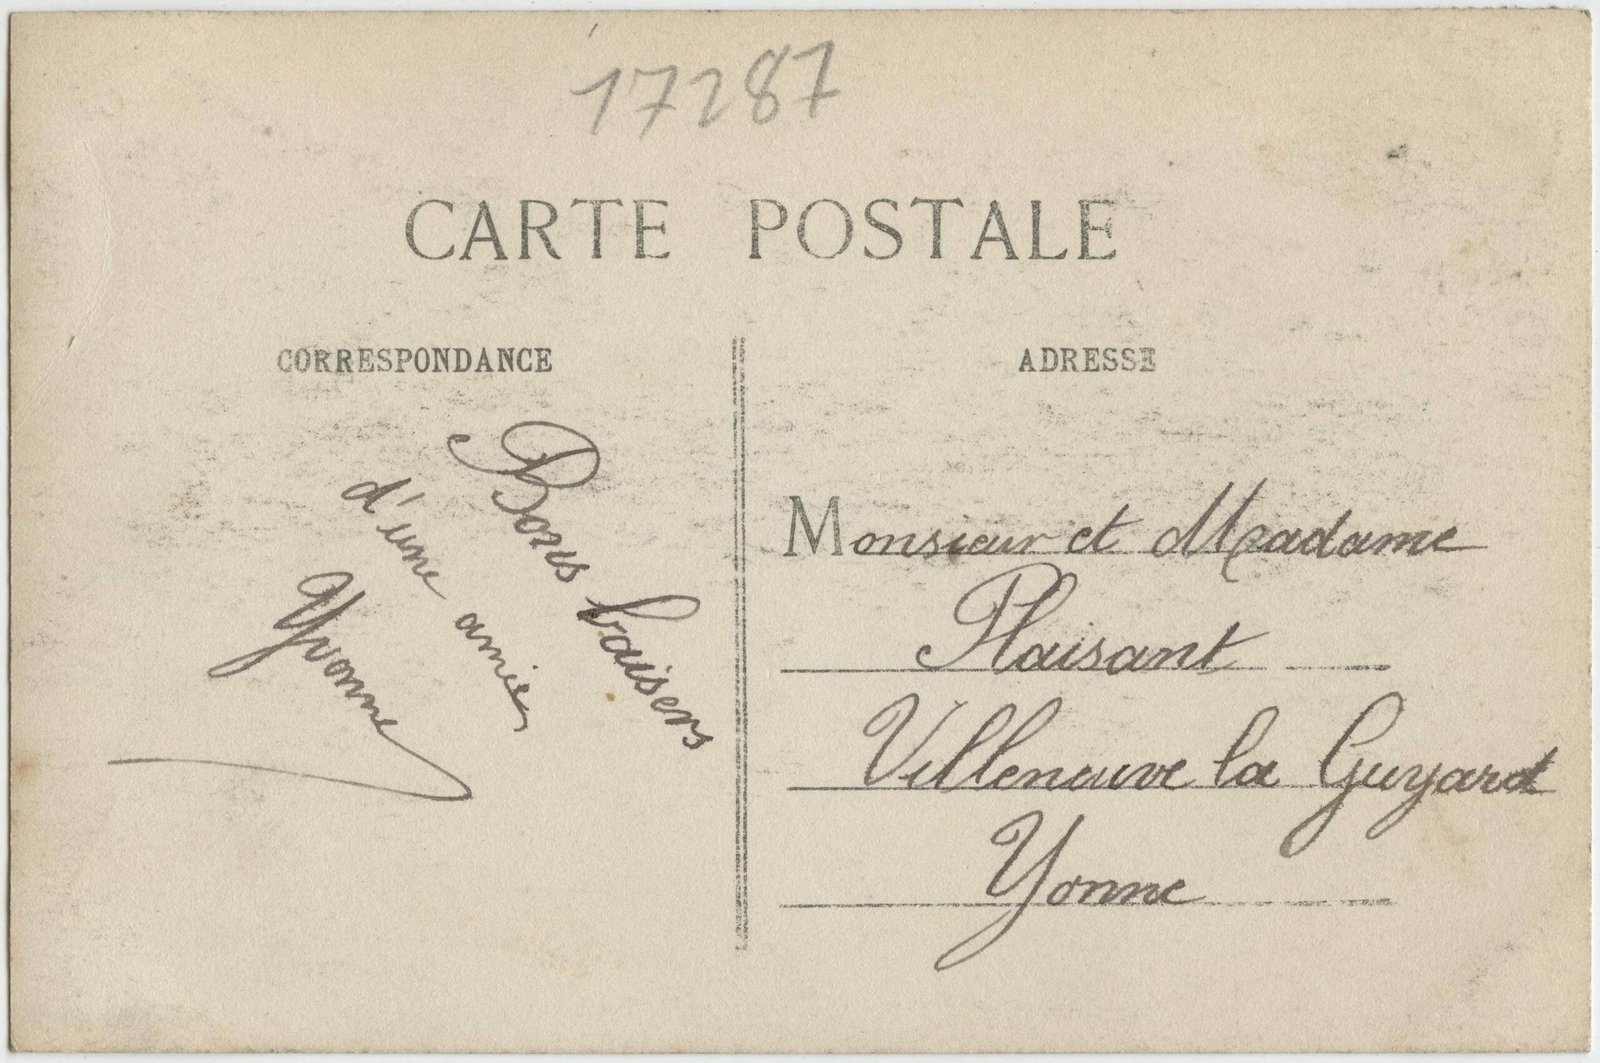 17287
CARTE POSTALE
CORRESPONDANCE
Bons baisers
d'une amie,
Yvonne
ADRESSE
Monsieur et Madame
Plaisant
Villeneuve la Guyard
Yonne